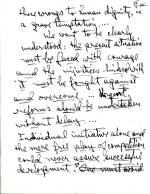 these wrongs to human dignity, is
a grave temptation....
We want to be clearly
understood: the present situation
must be faced with courage
and the injustices linked with
it must be fought against
and overcome. Urgent
reforms should be undertaken
without delay....
Individual initiative alone and
the mere free play of competition
could never assure successful
development. One must avoid